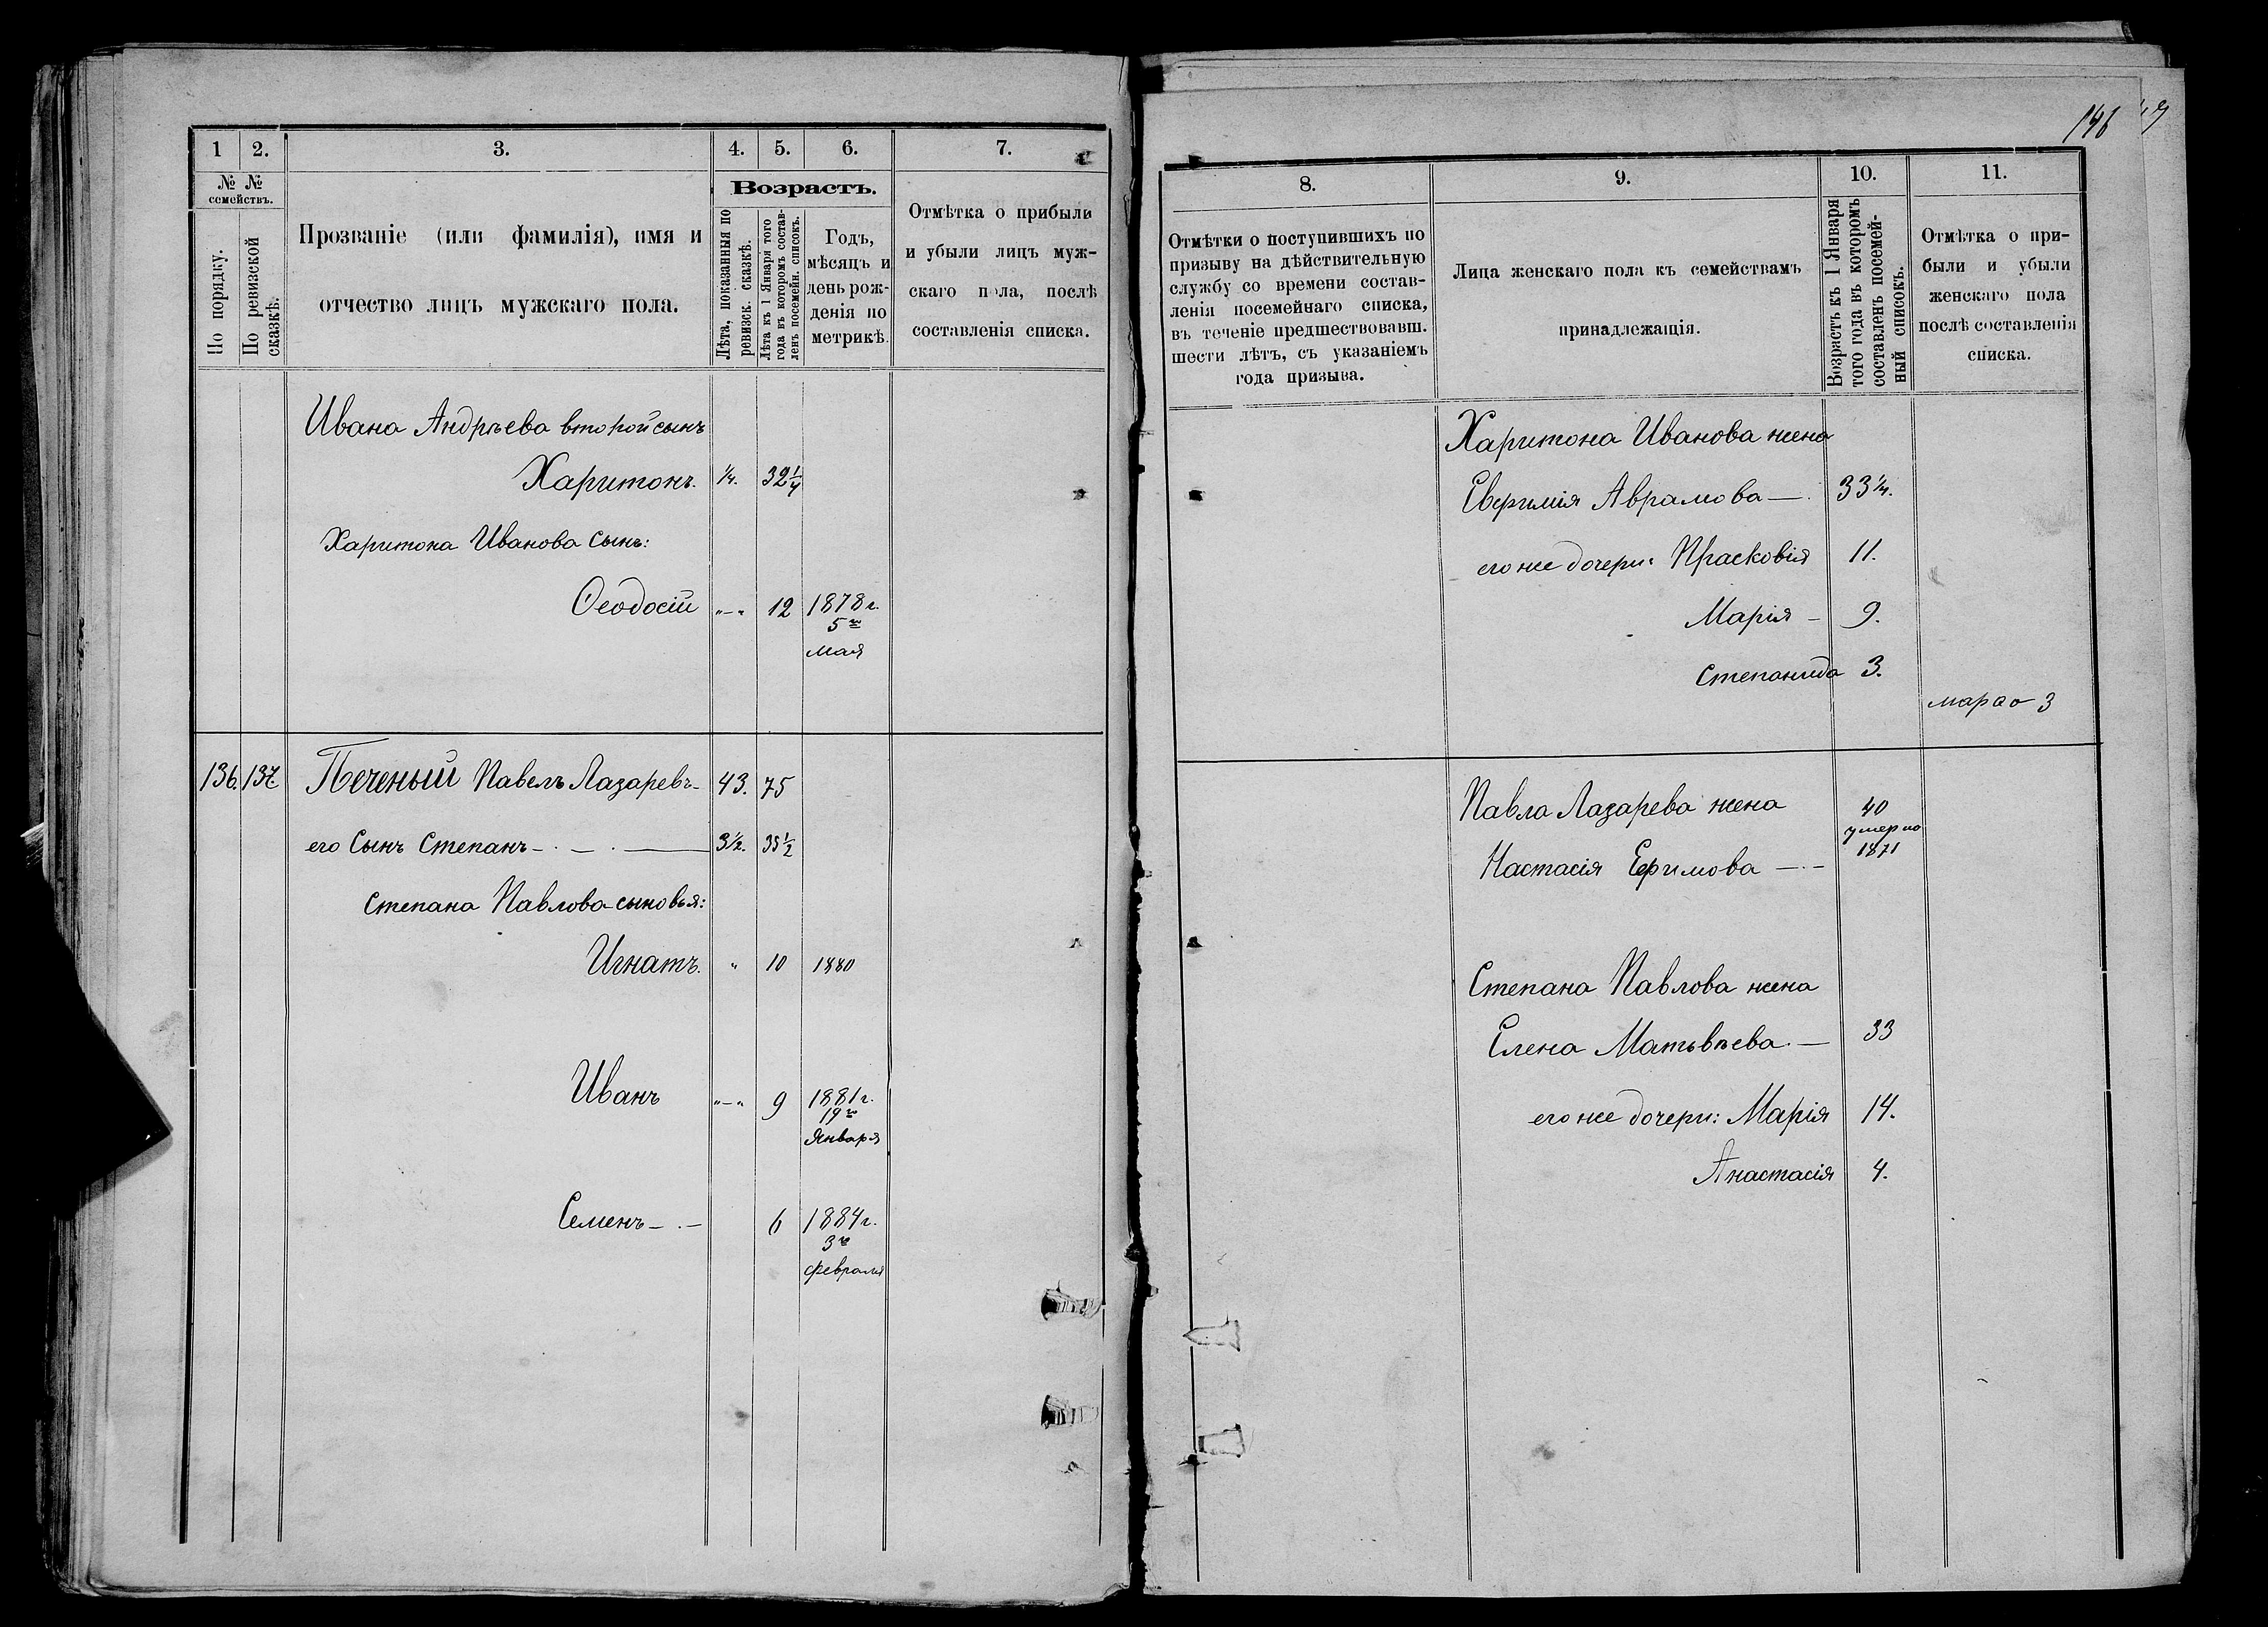 1
2.
3.
4.
5.
6.
7.
№ №
семействъ.
По порядку.
По ревизской
сказкѣ.
Прозваніе (или фамилія), имя и
отчество лицъ мужскаго пола.
Возрастъ.
Лѣта, показанныя по
ревизск. сказкѣ.
Лѣта къ 1 Января того
года въ которомъ состав-
ленъ посемейн. списокъ.
Годъ,
мѣсяцъ и
день рож-
денія по
метрикѣ.
Отмѣтка о прибыли
и убыли лицъ муж-
скаго пола, послѣ
составленія списка.
Ивана Андрѣева второй сынъ
Харитонъ. ¼. 32¼
Харитона Иванова Сынъ:
Ѳеодосій "–" 12 1878 г.
5го
мая
136. 137. Печеный Павелъ Лазаревъ 43. 75
его Сынъ Степанъ 3½. 35½
Степана Павлова сыновья:
Игнатъ. " 10 1880
Иванъ "–" 9 1881 г.
19го
Января
Семенъ 6 1884 г.
3го
февраля
146
8.
9.
10.
11.
Отмѣтки о поступившихъ по
призыву на дѣйствительную
службу со времени состав-
ленія посемейнаго списка,
въ теченіе предшествовавш.
шести лѣтъ, съ указаніемъ
года призыва.
Лица женскаго пола къ семействамъ
принадлежащія.
Возрастъ къ 1 Января
того года въ которомъ
составленъ посемей-
ный списокъ.
Отмѣтка о при-
были и убыли
женскаго пола
послѣ составленія
списка.
Харитона Иванова жена
Евфимія Аврамова 33¼.
его же дочери: Прасковія 11.
Марія 9.
Степанида 3.
3
Павла Лазарева жена 40
умерла
1871
Настасія Ефимова
Степана Павлова жена
Елена Матьвѣева 33
его же дочери: Марія 14.
Анастасія 4.